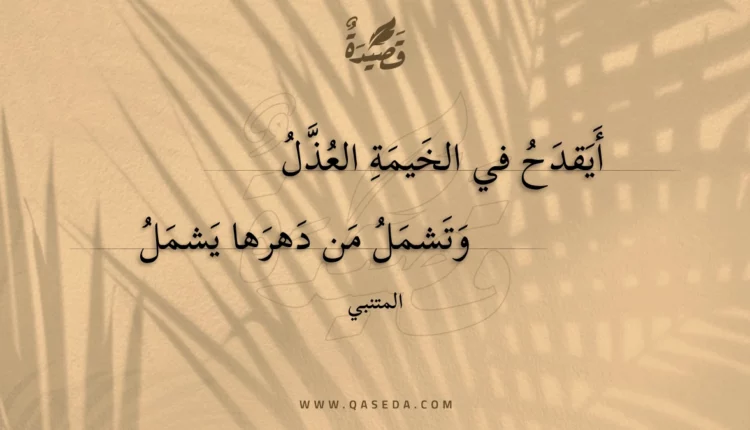 قَصِيدَةٌ
أَيَقدَحُ في الخَيمَةِ العُذَّلُ
وَتَشمَلُ مَن دَهرَها يَشمَلُ
المتنبي
WWW.QASEDA.COM